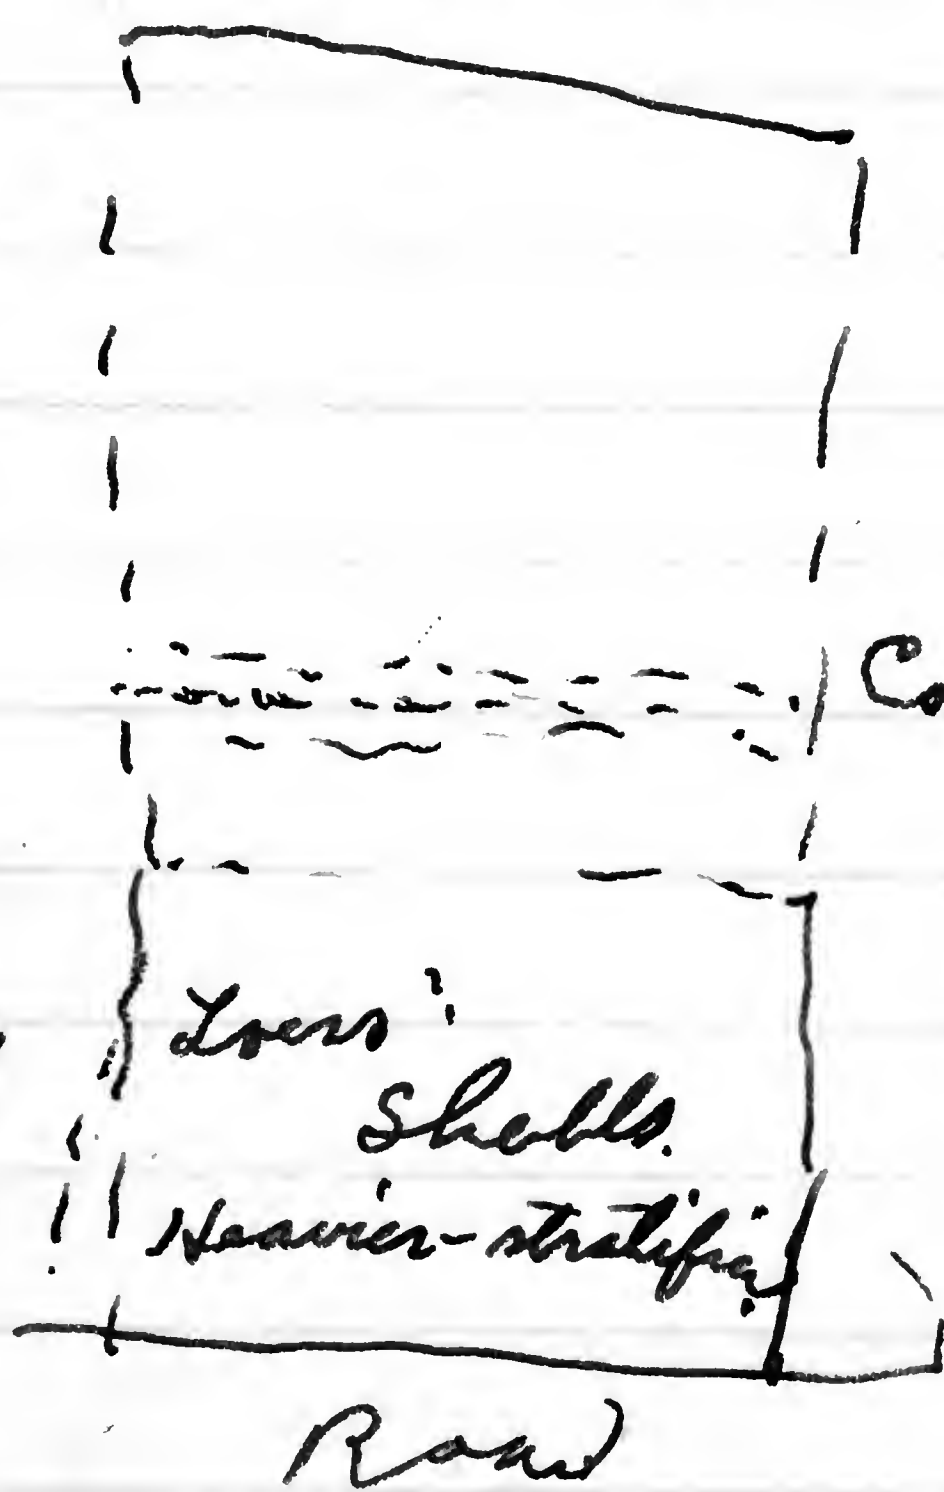 Co
Loess
Shells.
Heavier-stratifi
Road